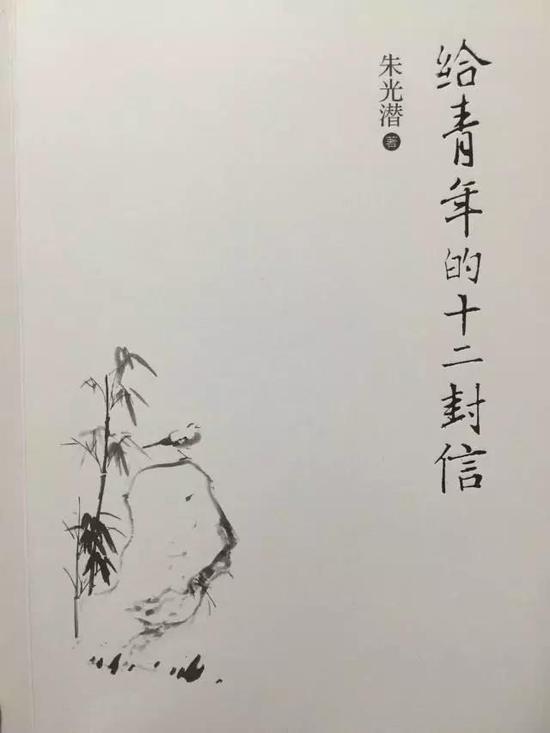 给青年的十二封信
朱光潜 著